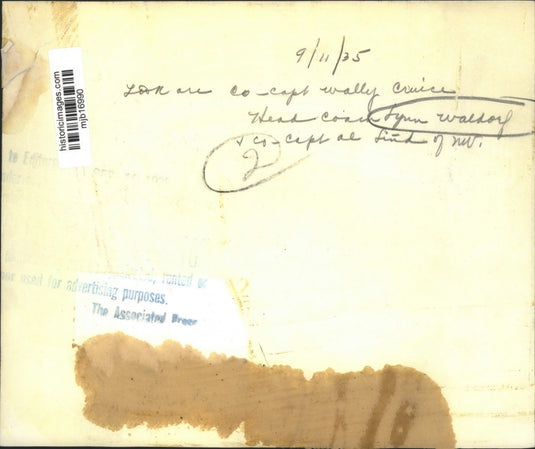 9/11/35
L to R are co-capt wally Cruice
Head coach Lynn Waldorf
& co-capt al Lind of NU.
2
historicimages.com
mjb16990
to Editors
rented or
nor used for advertising purposes.
The Associated Press